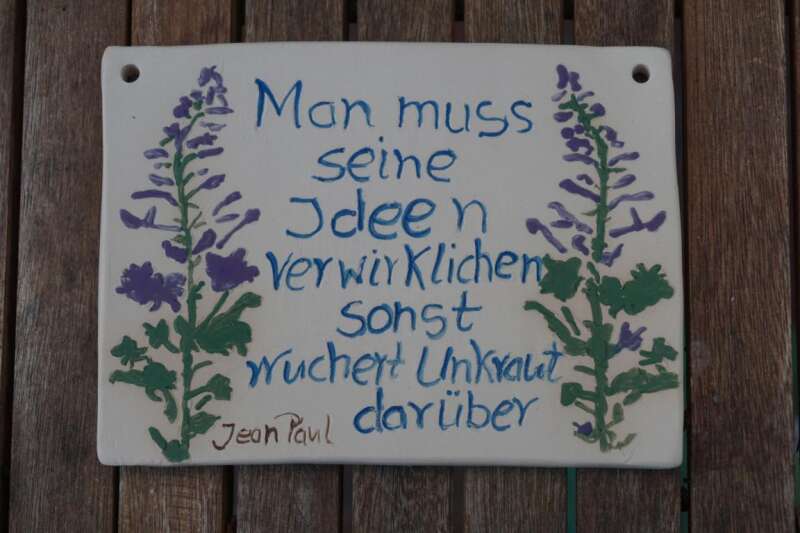 Man muss
seine
Ideen
verwirklichen
sonst
wuchert Unkraut
darüber
Jean Paul